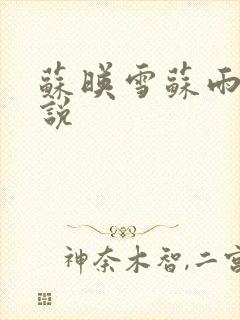 蘇暎雪蘇雨
說
神奈木智,二宮